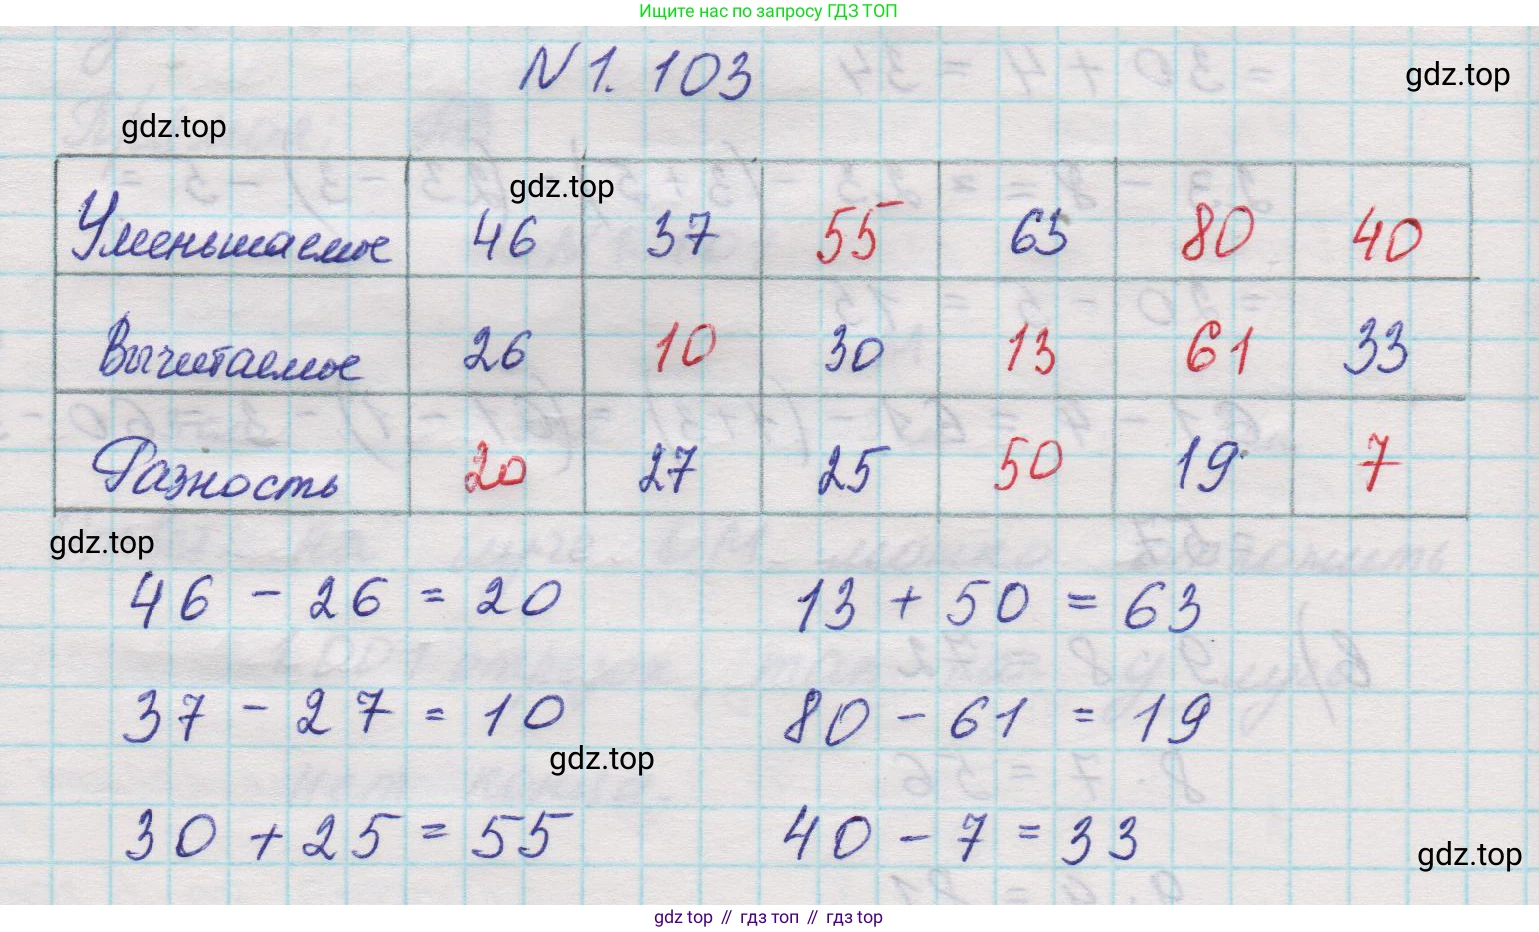 Ищите нас по запросу ГДЗ ТОП
N 1. 103
gdz.top
gdz.top
gdz.top
Уменьшаемое 46 37 55 63 80 40
Вычитаемое 26 10 30 13 61 33
Разность 20 27 25 50 19 7
gdz.top
46 - 26 = 20 13 + 50 = 63
37 - 27 = 10 80 - 61 = 19
gdz.top
30 + 25 = 55 40 - 7 = 33
gdz.top
gdz top // гдз топ // гдз top